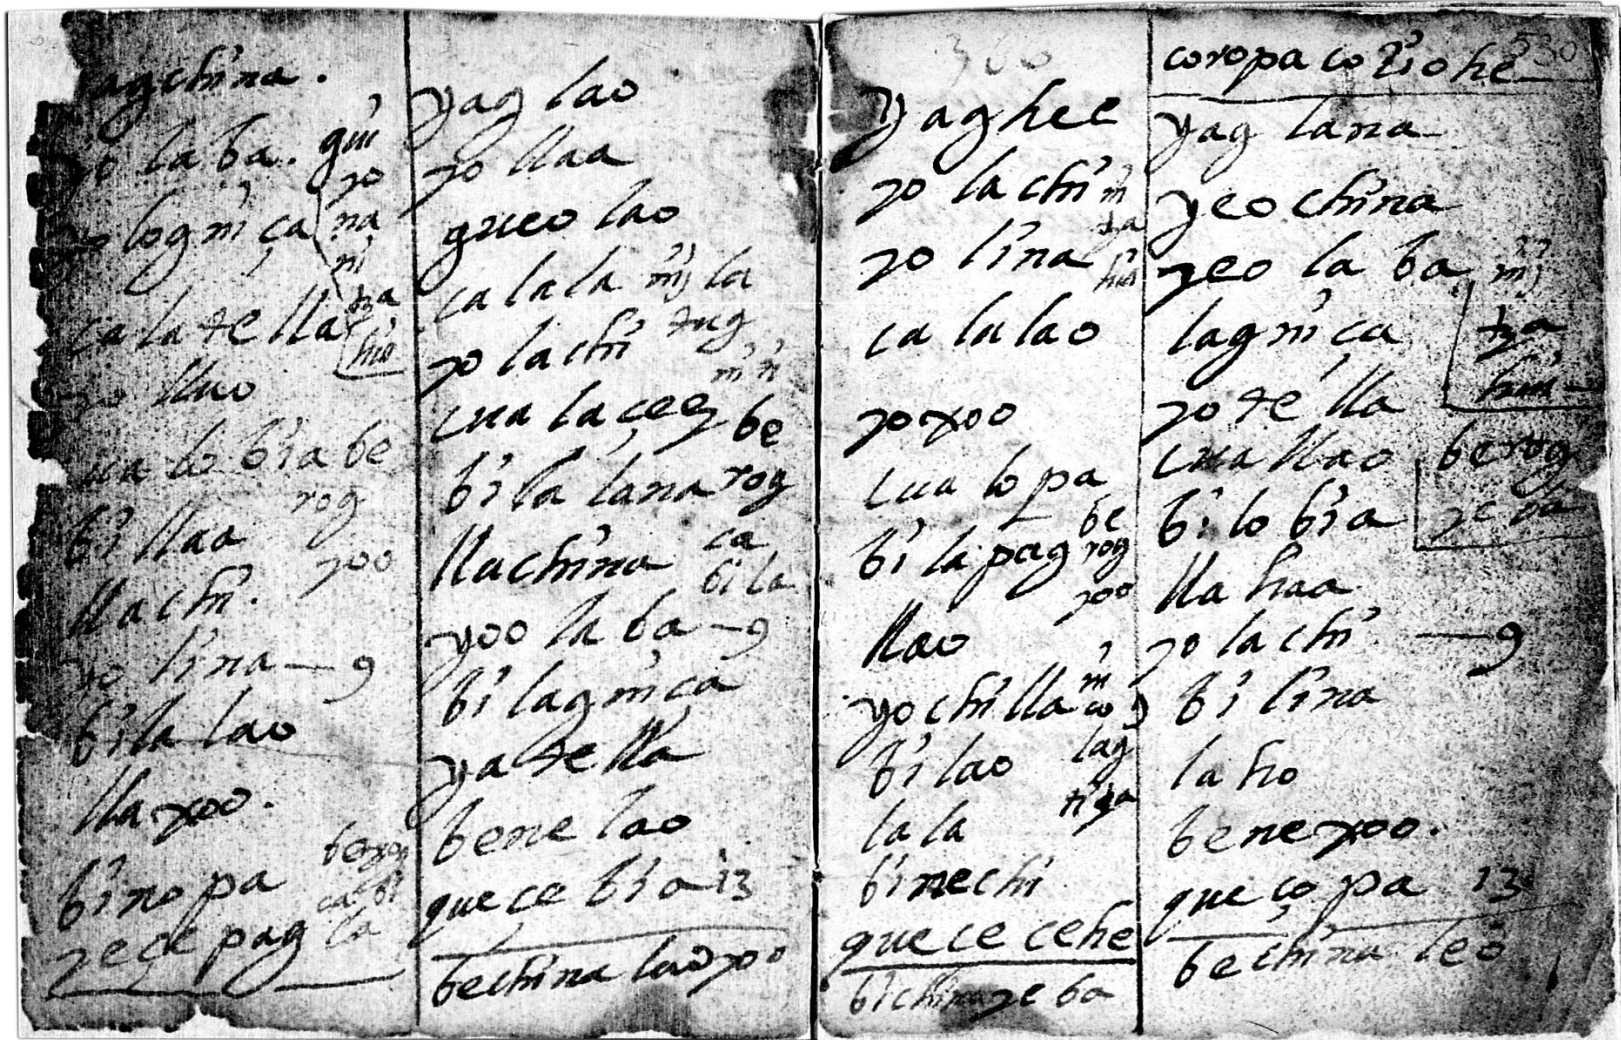 agchina.
yo la ba. qui
yo
yo logni ça na
ni
ca la te lla tza
hio
yo llao
cua lo bia be
rog
bi llaa
yoo
llachi.
yo lina — 9
bi la lao
lla xoo.
bino pa
cabi
yeçe pag la
yag lao
yo llaa
gueo lao
ca la la nij la
yo lachi tug
cua la çeey be
bi la lana rog
llachina ca
bi la
yoo la ba — 9
bi lagni ça
ya te lla
bene lao
que ce bia 13
bechina lao yoo
360
yaghee
yo lachi ni
yo lina hui
ca la lao
yo xoo
cua lo pa
be
bi la pag rog
yoo
llao
ni
yo chi lla co 9
lag
bi lao
la la
binechi
que ce cehe
bichina ye ba
530
coropa co tiohe
yag lana
yeo china
yeo la ba nij
lagni ca tza
hui
yo te lla
cua llao berog
bi lo bia
lla haa
yo la chi — 9
bi lina
la ho
bene xoo.
que ço pa 13
bechina leo